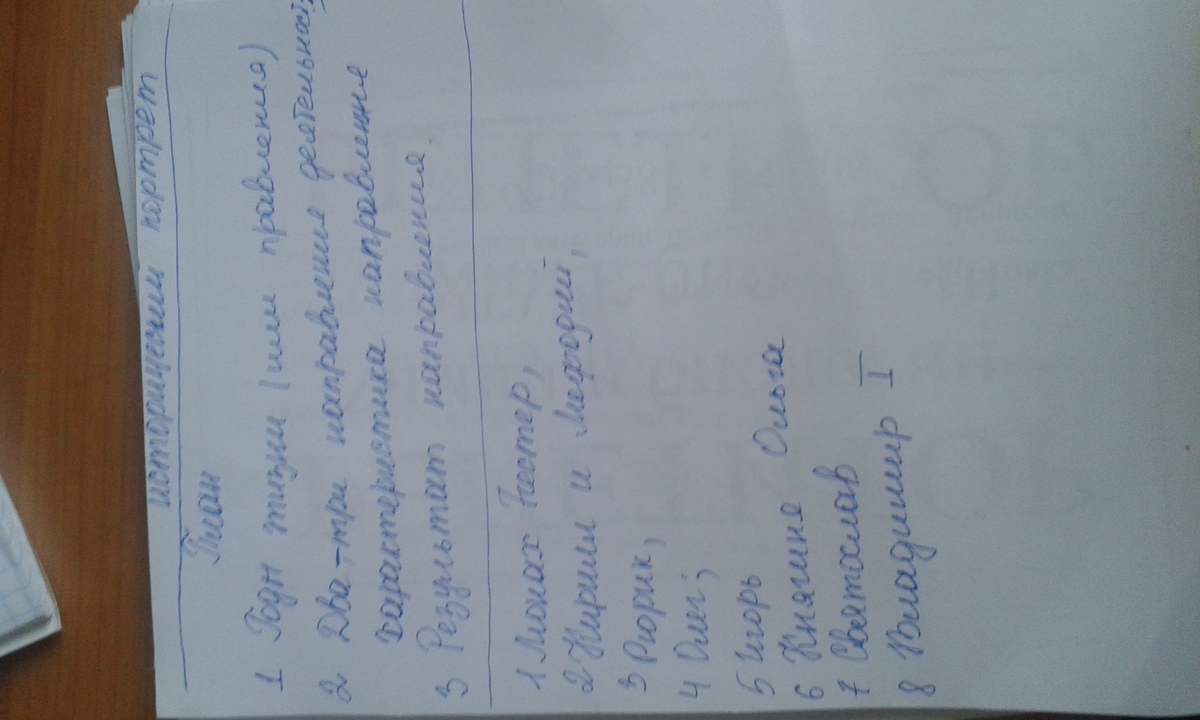 исторический портрет
План
1 Годы жизни (или правления)
2 Два,-три направления деятельности,
характеристика направление
3 Результат направления.
1 Монах Нестер,
2 Кирилл и Мефодий,
3 Рюрик,
4 Олег;
5 Игорь
6 Княгиня Ольга
7 Святослав
8 Владимир I